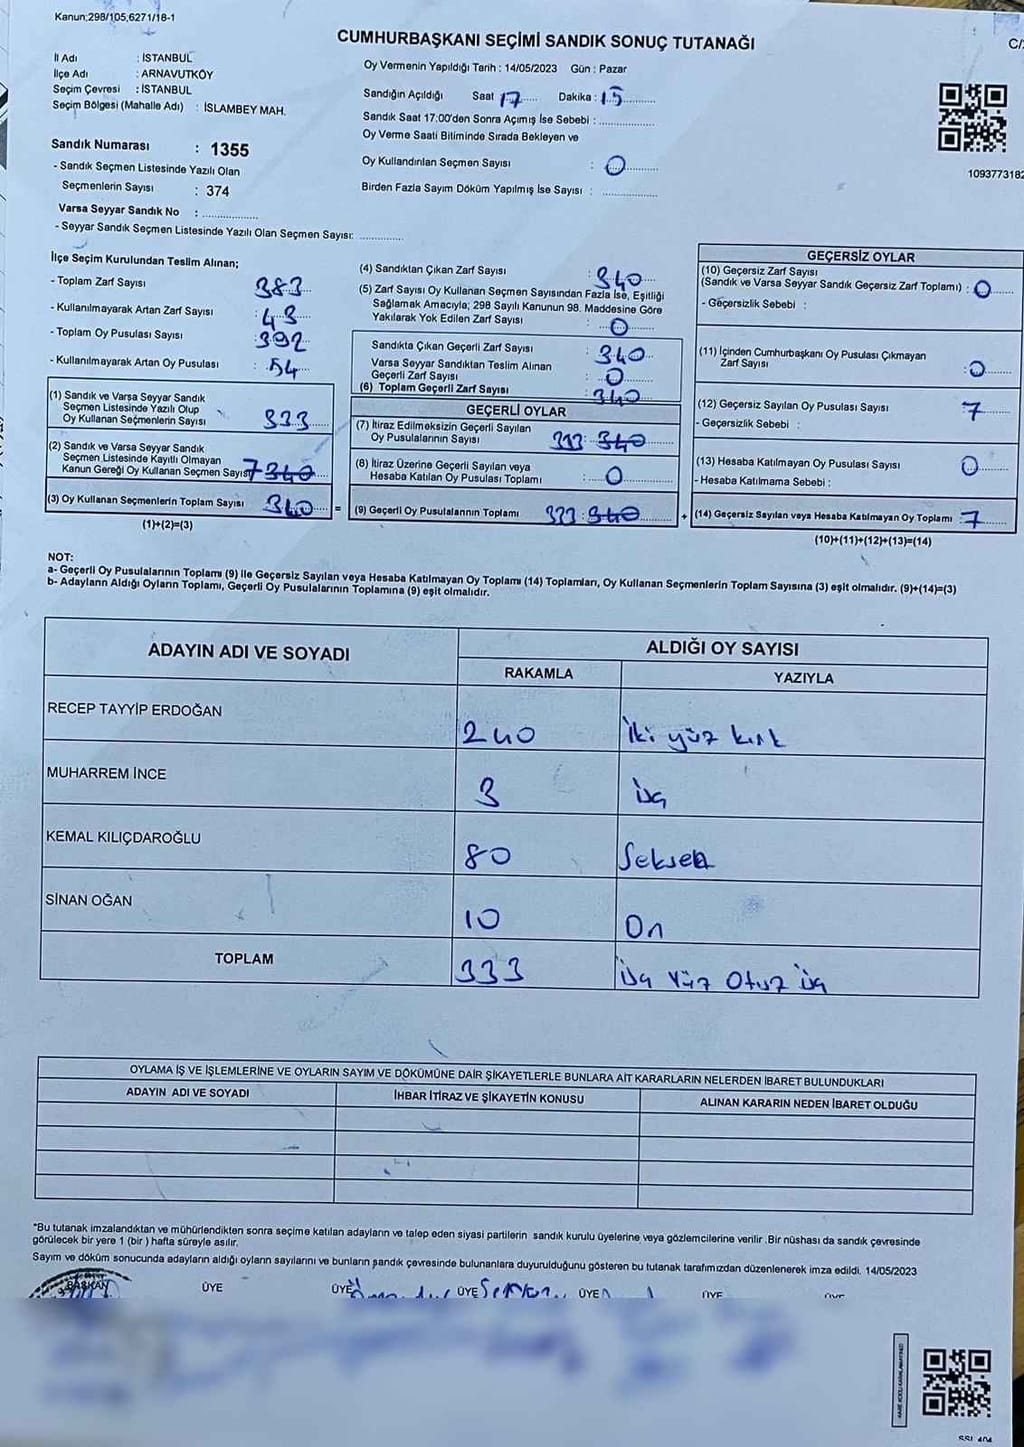 Kanun;298/105,6271/18-1
CUMHURBAŞKANI SEÇİMİ SANDIK SONUÇ TUTANAĞI
İl Adı : İSTANBUL
İlçe Adı : ARNAVUTKÖY
Seçim Çevresi : İSTANBUL
Seçim Bölgesi (Mahalle Adı) : İSLAMBEY MAH.
Sandık Numarası : 1355
- Sandık Seçmen Listesinde Yazılı Olan
Seçmenlerin Sayısı : 374
Varsa Seyyar Sandık No :
- Seyyar Sandık Seçmen Listesinde Yazılı Olan Seçmen Sayısı:
Oy Vermenin Yapıldığı Tarih : 14/05/2023 Gün : Pazar
Sandığın Açıldığı Saat 17 Dakika : 15
Sandık Saat 17:00'den Sonra Açımış İse Sebebi :
Oy Verme Saati Bitiminde Sırada Bekleyen ve
Oy Kullandırılan Seçmen Sayısı : 0
Birden Fazla Sayım Döküm Yapılmış İse Sayısı :
1093773182
İlçe Seçim Kurulundan Teslim Alınan;
- Toplam Zarf Sayısı : 383
- Kullanılmayarak Artan Zarf Sayısı : 43
- Toplam Oy Pusulası Sayısı : 392
- Kullanılmayarak Artan Oy Pusulası : 54
(1) Sandık ve Varsa Seyyar Sandık
Seçmen Listesinde Yazılı Olup
Oy Kullanan Seçmenlerin Sayısı 333
(2) Sandık ve Varsa Seyyar Sandık
Seçmen Listesinde Kayıtlı Olmayan
Kanun Gereği Oy Kullanan Seçmen Sayısı 7 340
(3) Oy Kullanan Seçmenlerin Toplam Sayısı 340 =
(1)+(2)=(3)
(4) Sandıktan Çıkan Zarf Sayısı : 340
(5) Zarf Sayısı Oy Kullanan Seçmen Sayısından Fazla İse, Eşitliği
Sağlamak Amacıyla; 298 Sayılı Kanunun 98. Maddesine Göre
Yakılarak Yok Edilen Zarf Sayısı : 0
Sandıkta Çıkan Geçerli Zarf Sayısı : 340
Varsa Seyyar Sandıktan Teslim Alınan
Geçerli Zarf Sayısı : 0
(6) Toplam Geçerli Zarf Sayısı : 340
GEÇERLİ OYLAR
(7) İtiraz Edilmeksizin Geçerli Sayılan
Oy Pusulalarının Sayısı 333 : 340
(8) İtiraz Üzerine Geçerli Sayılan veya
Hesaba Katılan Oy Pusulası Toplamı : 0
(9) Geçerli Oy Pusulalarının Toplamı 333 : 340 +
GEÇERSİZ OYLAR
(10) Geçersiz Zarf Sayısı
(Sandık ve Varsa Seyyar Sandık Geçersiz Zarf Toplamı) : 0
- Geçersizlik Sebebi :
(11) İçinden Cumhurbaşkanı Oy Pusulası Çıkmayan
Zarf Sayısı : 0
(12) Geçersiz Sayılan Oy Pusulası Sayısı 7
- Geçersizlik Sebebi :
(13) Hesaba Katılmayan Oy Pusulası Sayısı 0
- Hesaba Katılmama Sebebi :
(14) Geçersiz Sayılan veya Hesaba Katılmayan Oy Toplamı : 7
(10)+(11)+(12)+(13)=(14)
NOT:
a- Geçerli Oy Pusulalarının Toplamı (9) ile Geçersiz Sayılan veya Hesaba Katılmayan Oy Toplamı (14) Toplamları, Oy Kullanan Seçmenlerin Toplam Sayısına (3) eşit olmalıdır. (9)+(14)=(3)
b- Adayların Aldığı Oyların Toplamı, Geçerli Oy Pusulalarının Toplamına (9) eşit olmalıdır.
ADAYIN ADI VE SOYADI ALDIĞI OY SAYISI
RAKAMLA YAZIYLA
RECEP TAYYİP ERDOĞAN 240 İki yüz kırk
MUHARREM İNCE 3 üç
KEMAL KILIÇDAROĞLU 80 Seksen
SİNAN OĞAN 10 On
TOPLAM 333 üç Yüz Otuz üç
OYLAMA İŞ VE İŞLEMLERİNE VE OYLARIN SAYIM VE DÖKÜMÜNE DAİR ŞİKAYETLERLE BUNLARA AİT KARARLARIN NELERDEN İBARET BULUNDUKLARI
ADAYIN ADI VE SOYADI İHBAR İTİRAZ VE ŞİKAYETİN KONUSU ALINAN KARARIN NEDEN İBARET OLDUĞU
*Bu tutanak imzalandıktan ve mühürlendikten sonra seçime katılan adayların ve talep eden siyasi partilerin sandık kurulu üyelerine veya gözlemcilerine verilir .Bir nüshası da sandık çevresinde
görülecek bir yere 1 (bir ) hafta süreyle asılır.
Sayım ve döküm sonucunda adayların aldığı oyların sayılarını ve bunların sandık çevresinde bulunanlara duyurulduğunu gösteren bu tutanak tarafımızdan düzenlenerek imza edildi. 14/05/2023
BAŞKAN ÜYE ÜYE ÜYE ÜYE ÜYE ÜYE